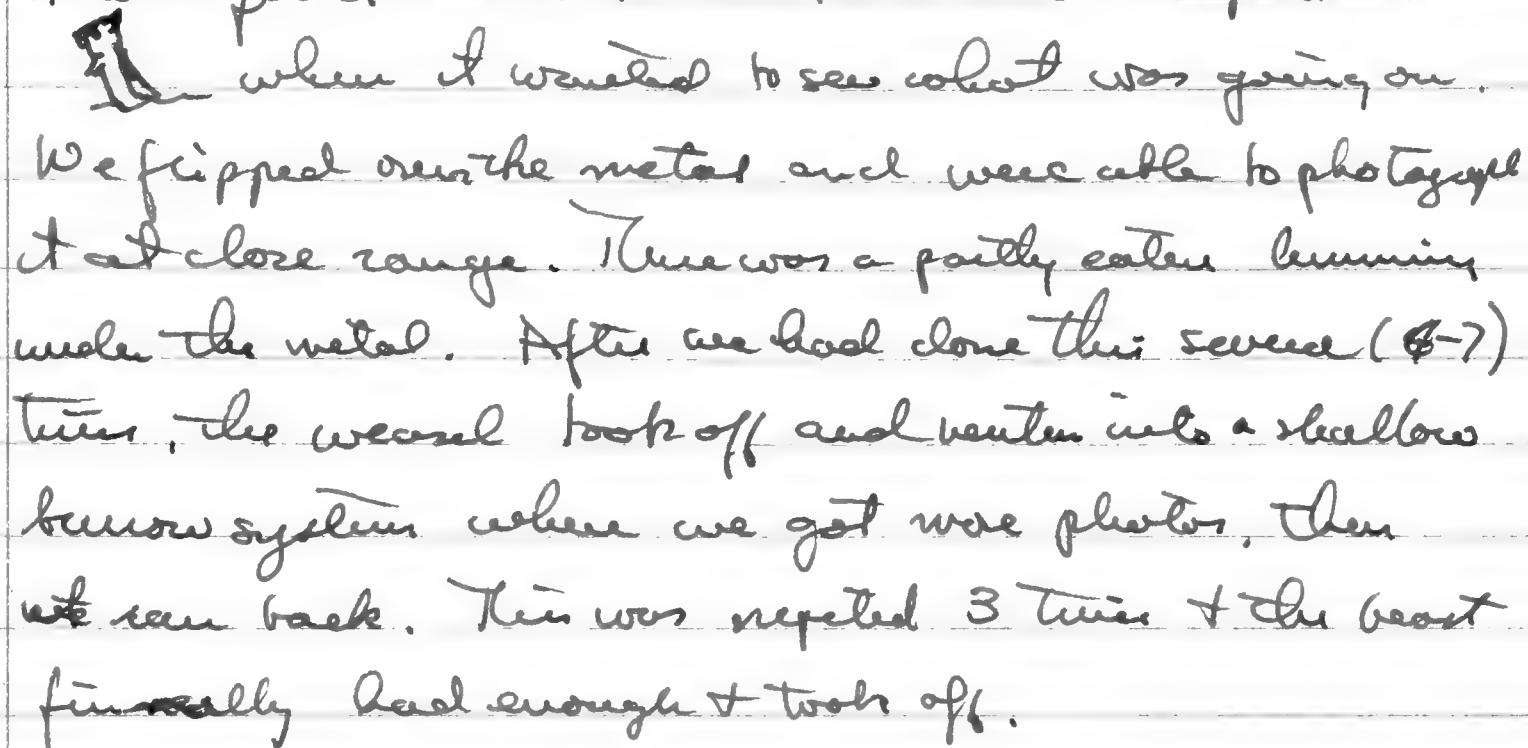 when it wanted to see what was going on.
We flipped over the metal and were able to photograph
it at close range. There was a partly eaten lemming
under the metal. After we had done this several (6-7)
times, the weasel took off and went into a shallow
burrow system where we got more photos, then
it ran back. This was repeted 3 times + the beast
finally had enough + took off.